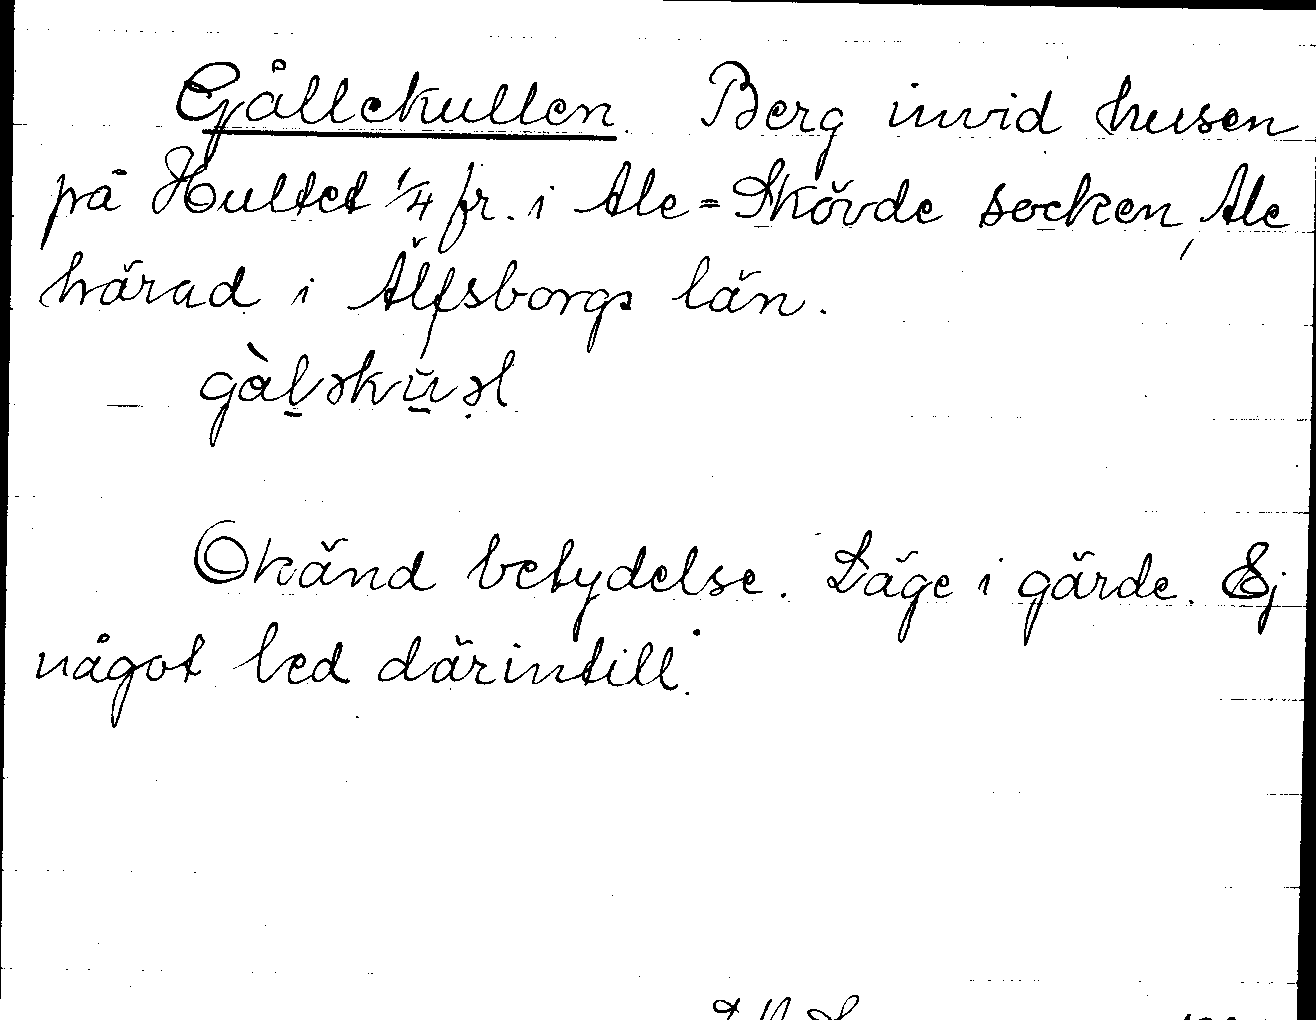 Gållekullen. Berg invid husen
på Hultet 1/4 fr. i Ale=Skövde socken, Ale
härad i Älfsborgs län.
gàləkŭəl
Okänd betydelse. Läge i gärde. Ej
något led därintill.